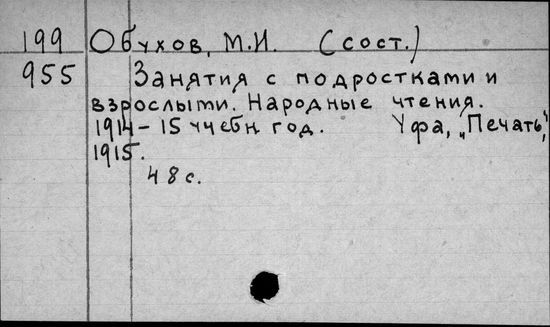 199 Обухов, М.И. (сост.)
955 Занятия с подростками и
взрослыми. Народные чтения.
1914-15 учебн. год. Уфа, „Печать",
1915.
48 с.